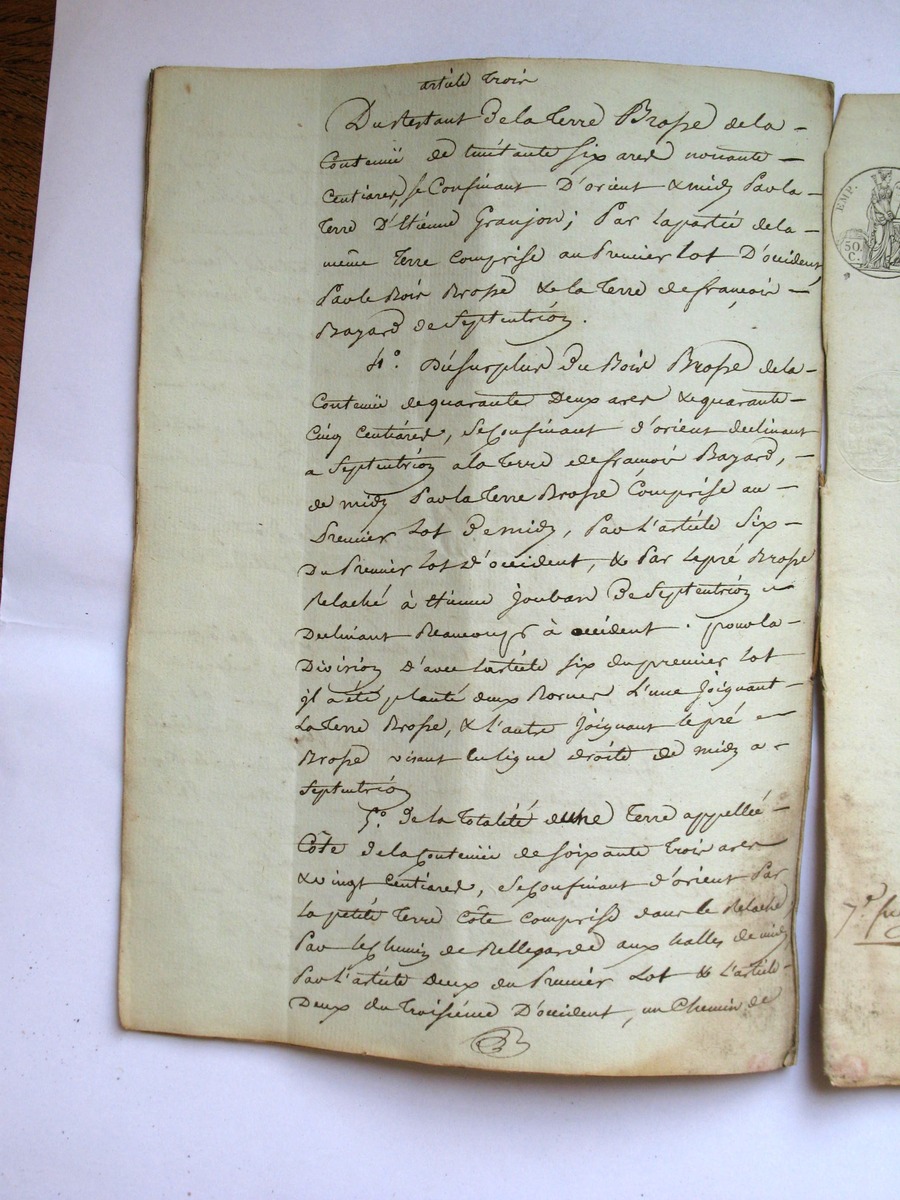 article Trois
Du restant De la Terre Brosse de la -
Contenüe de huitante six ares nonante -
Centiares, se Confinant D'orient & midy Par la -
Terre D'Etienne Granjon; Par la partie de la -
même Terre Comprise au Premier Lot D'occident,
Par le Bois Brosse & la Terre de françois -
Bayard de Septentrion.
4.° Du surplus Du Bois Brosse de la -
Contenüe de quarante Deux ares & quarante -
Cinq Centiares, se Confinant d'orient declinant
a Septentrion a la Terre de francois Bayard, -
de midy Par la Terre Brosse Comprise au -
Premier Lot De midy, Par L'article Six -
Du Premier Lot d'occident, & Par le pré Brosse
Relaché à Etienne Jouban De Septentrion
Declinant Beaucoup à occident. pour la -
Division d'avec l'article six du premier Lot
il a été planté deux Bornes L'une Joignant -
La Terre Brosse, & l'autre Joignant le pré
Brosse visant en ligne droite de midy a -
Septentrion
5.° De la Totalité d'une Terre appellée -
Côte De la Contenüe de soixante Trois ares
& vingt Centiares, se Confinant d'orient Par
La petite Terre Côte comprise dans le Relaché,
Par le Chemin de Bellegarde aux halles de midy
Par L'article Deux du Premier Lot & L'article -
Deux du Troisième D'occident, un Chemin de
EMP.
50
C.
7.°